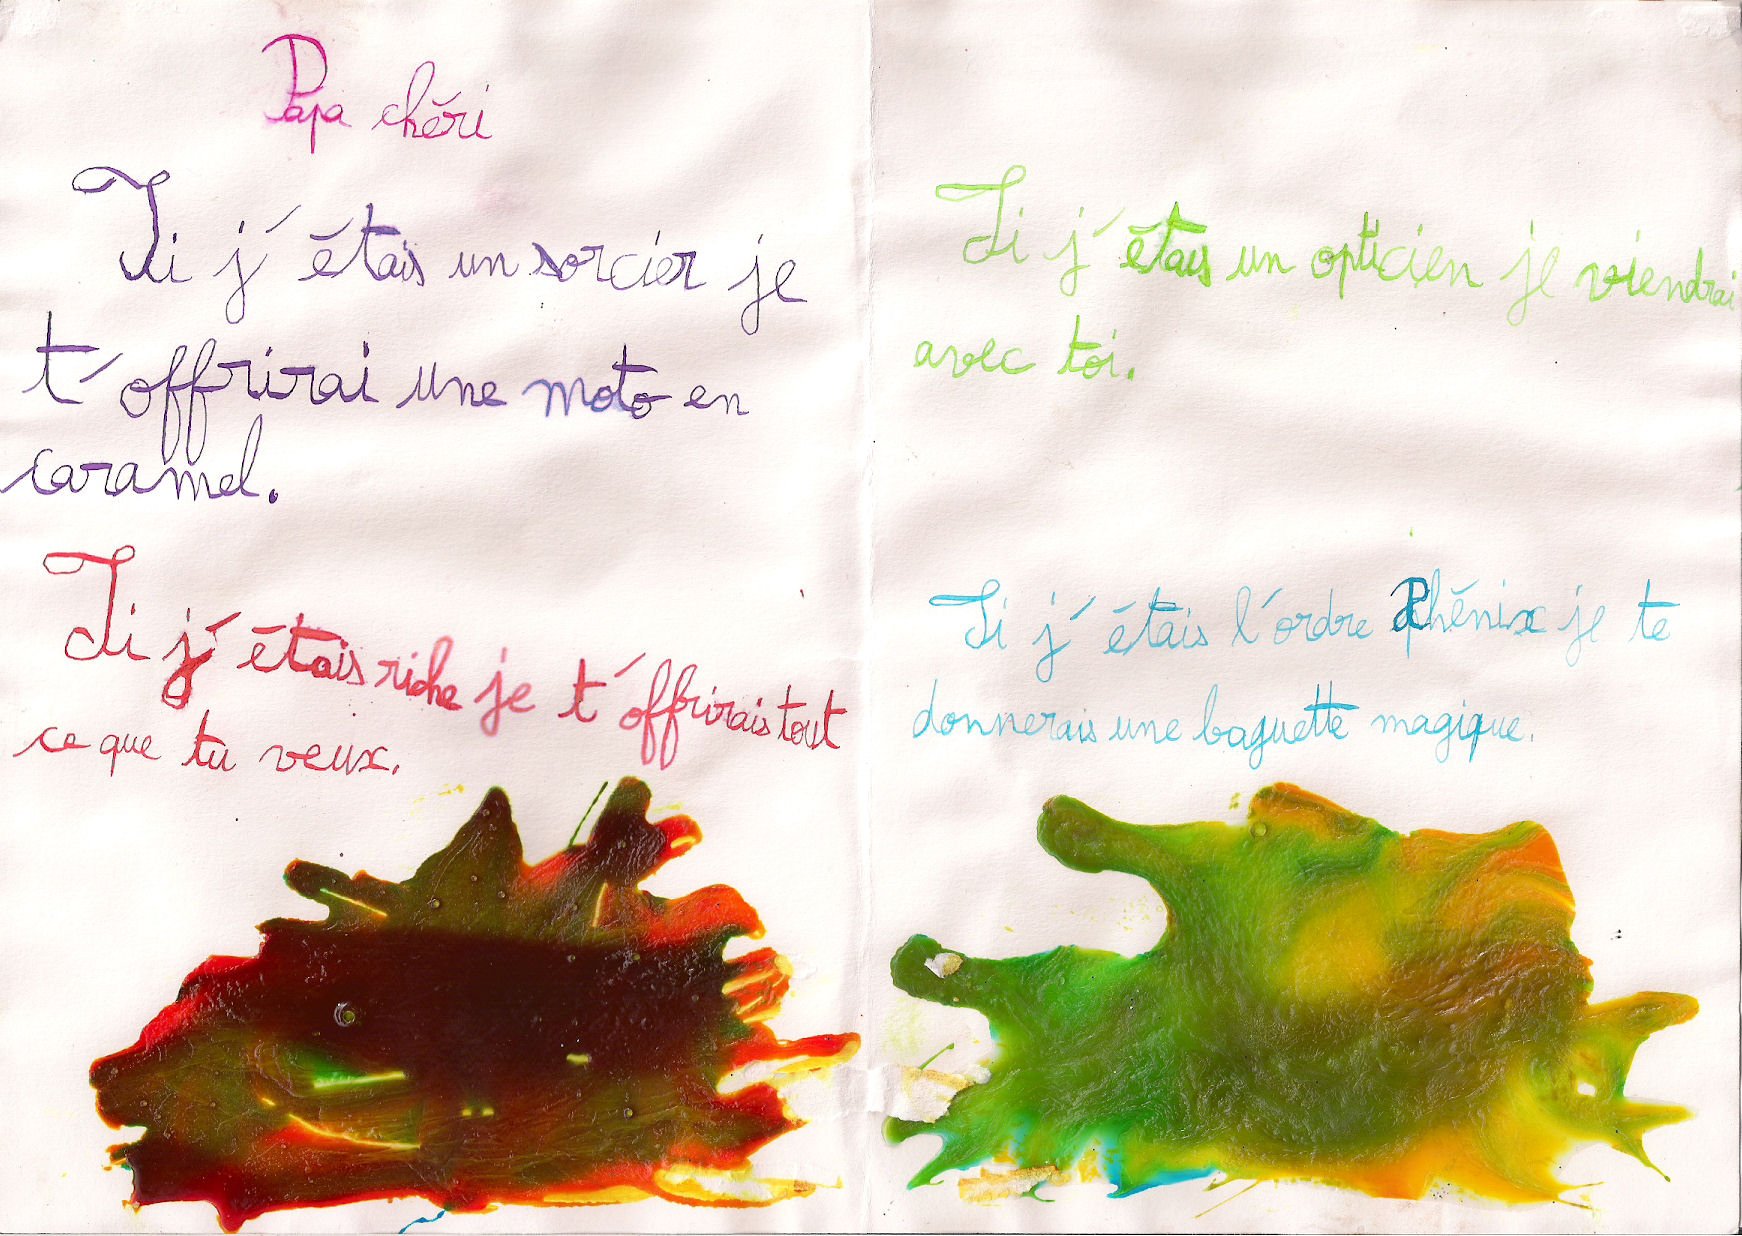 Papa chéri
Si j'étais un sorcier je
t'offrirai une moto en
caramel.
Si j'étais riche je t'offrirais tout
ce que tu veux.
Si j'étais un opticien je viendrai
avec toi.
Si j'étais l'ordre Phénix je te
donnerais une baguette magique.